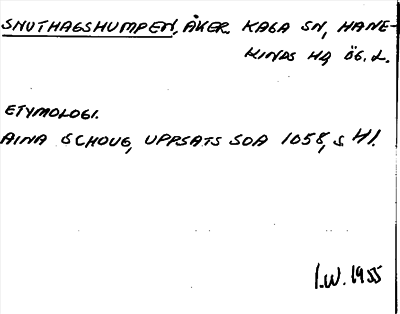 SNUTHAGSHUMPEN, ÅKER. KAGA SN, HANE-
KINDS HD ÖG. L.
ETYMOLOGI.
AINA SCHOUG, UPPSATS SOA 1058, S 41.
I.W. 1955